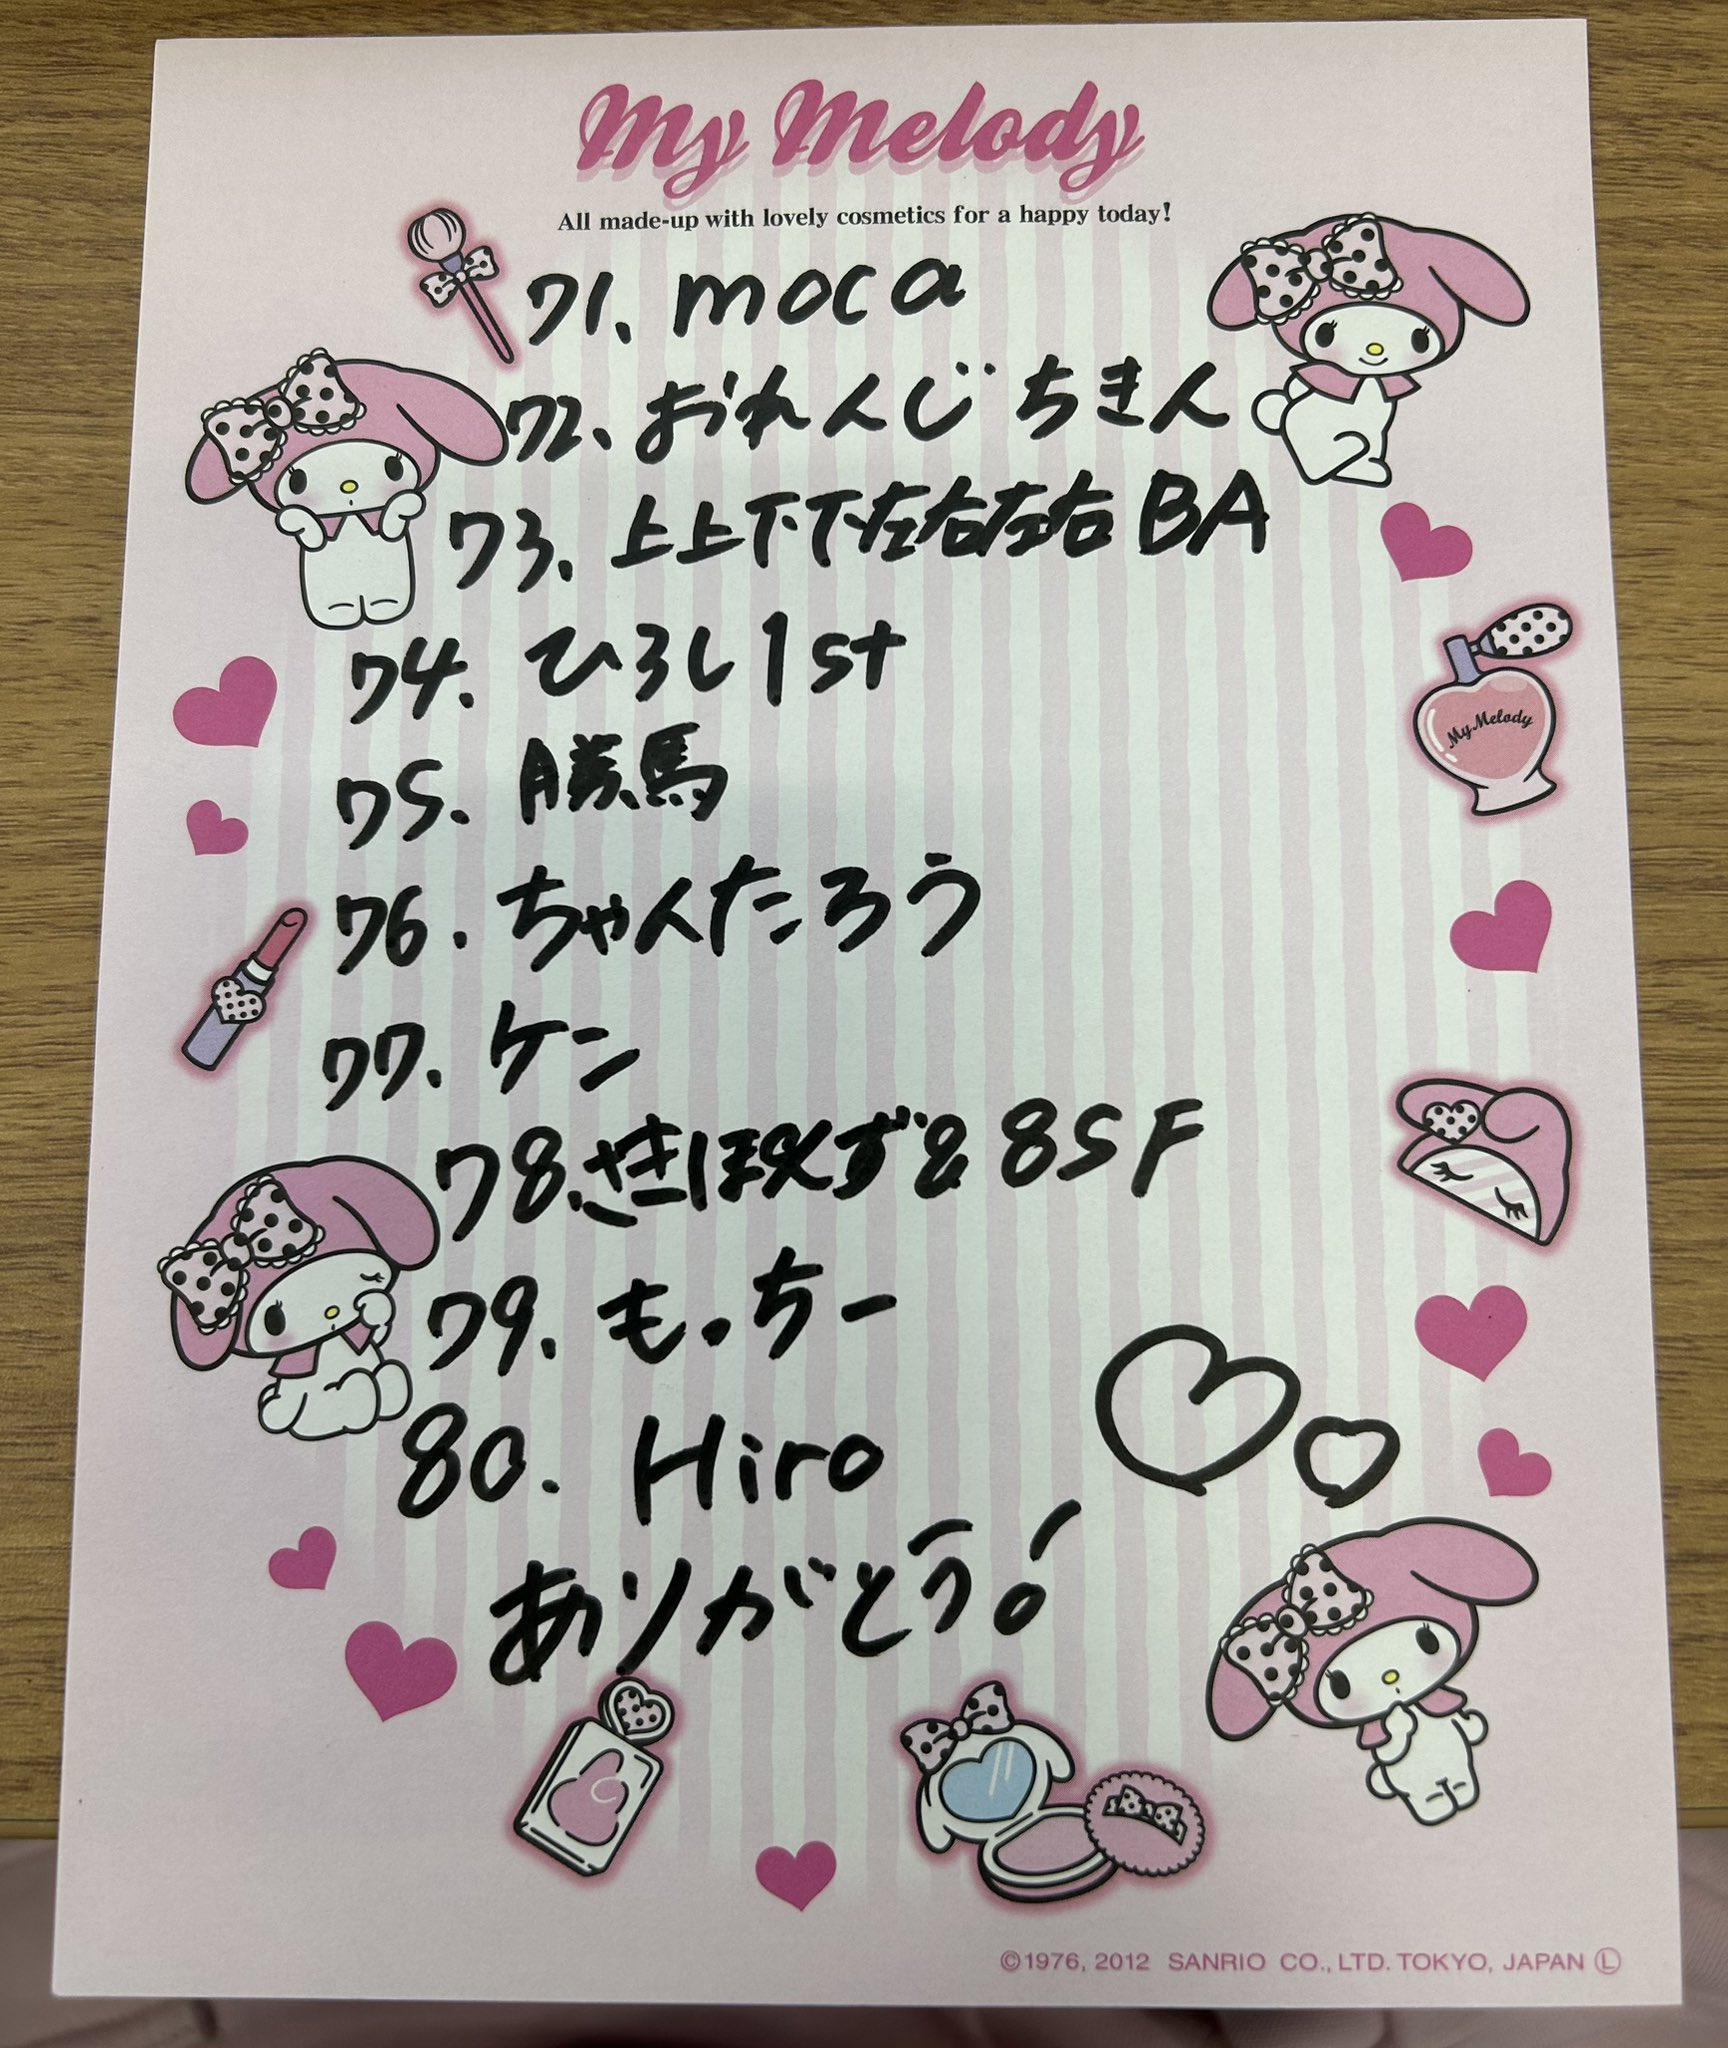 My Melody
All made-up with lovely cosmetics for a happy today!
71. moca
72. おれんじちきん
73. 上上下下左右左右BA
74. ひろし1st
My Melody
75. 勝馬
76. ちゃんたろう
77. ケン
78. さきほ必ず& 8SF
79. もっちー
80. Hiro
ありがとう!
©1976, 2012 SANRIO CO., LTD. TOKYO, JAPAN Ⓛ